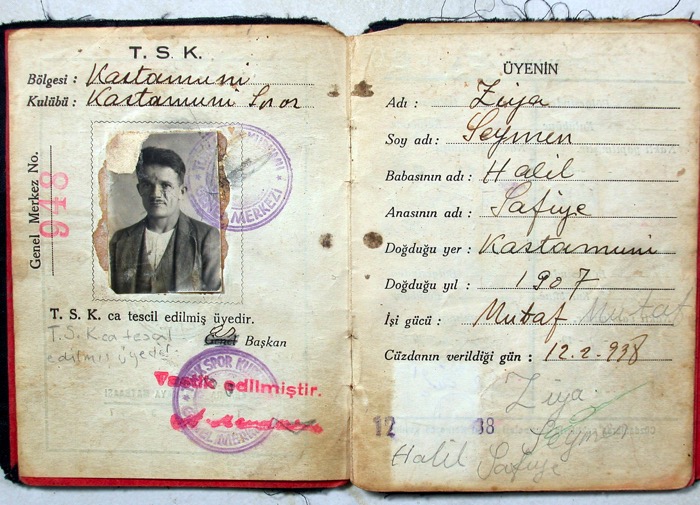 T. S. K.
Bölgesi : Kastamuni
Kulübü : Kastamuni Spor
Genel Merkez No.
948
GENEL MERKEZİ
T. S. K. ca tescil edilmiş üyedir.
T. S. K ca tescil
edilmiş üyedir.
Genel Başkan
SPOR KURUMU
Tastik edilmiştir.
GENEL MERKEZİ
ÜYENİN
Adı : Ziya
Soy adı: Seymen
Babasının adı : Halil
Anasının adı : Safiye
Doğduğu yer : Kastamuni
Doğduğu yıl : 1907
İşi gücü : Mutaf Mutaf
Cüzdanın verildiği gün : 12-2-938
Ziya
12 38
Seymen
Halil Safiye